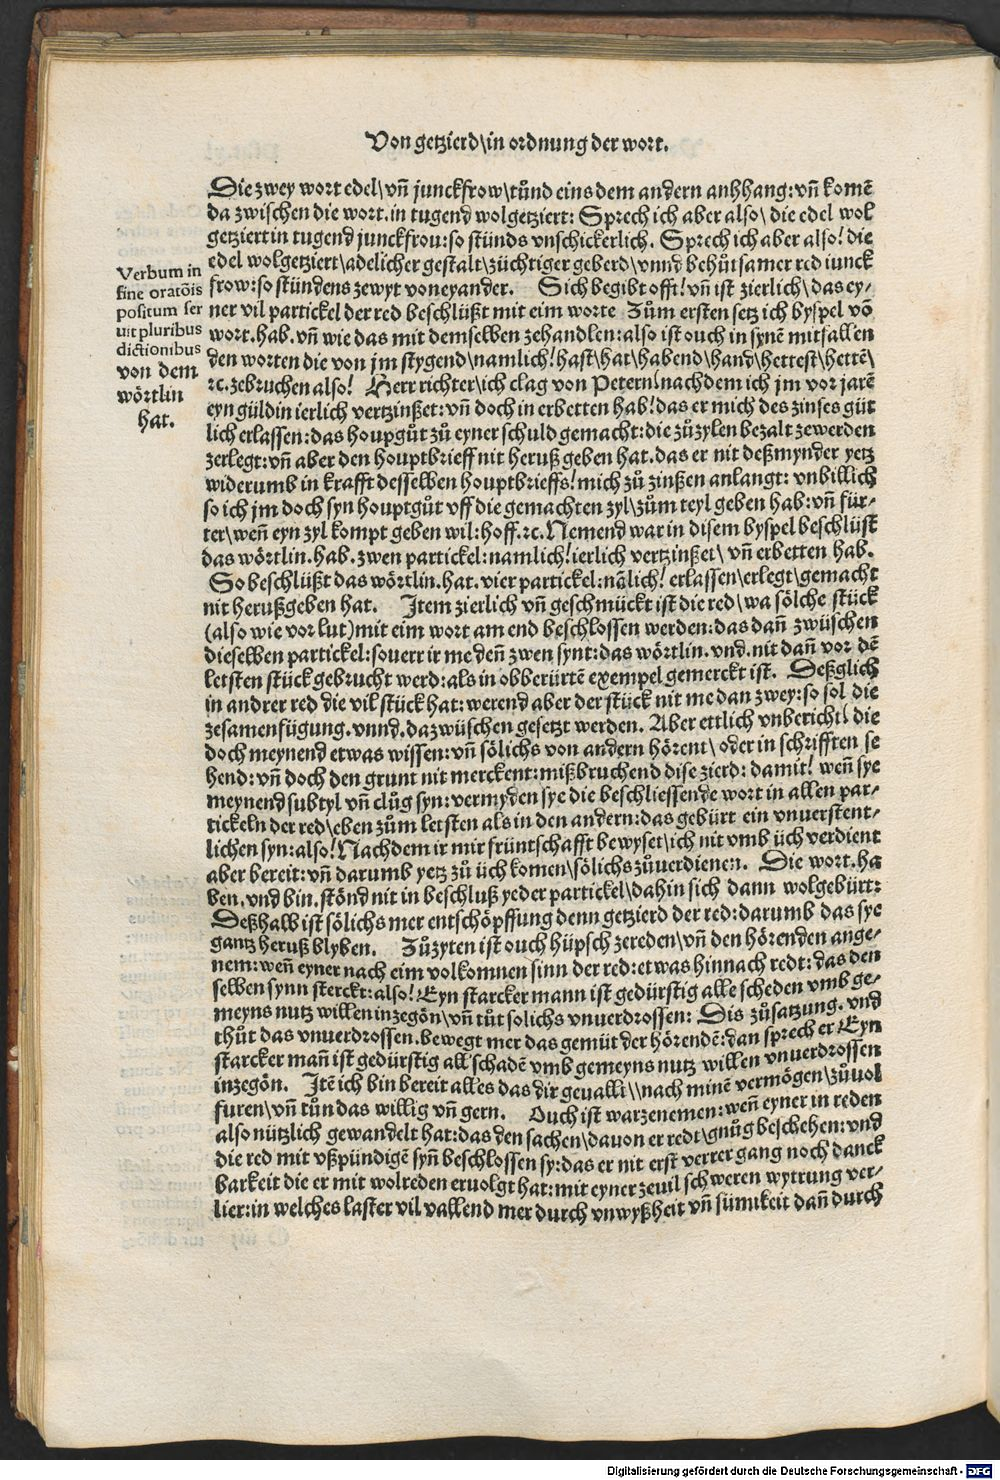 Von getzierd\in ordnung der wort.
Die zwey wort edel\vn̄ junckfrow\tůnd eins dem andern anhhang:vn̄ komē
da zwischen die wort.in tugend wolgetziert: Sprech ich aber also\ die edel wol
getziert in tugend junckfrou:so stünds vnschickerlich. Sprech ich aber also! die
edel wolgetziert\adelicher gestalt\züchtiger geberd\vnnd behůtsamer red iunck
frow:so stündens zewyt voneyander. Sich begibt offt!vn̄ ist zierlich\das ey⸗
ner vil partickel der red beschlüßt mit eim worte Zům ersten setz ich byspel vō
wort.hab.vn̄ wie das mit demselben zehandlen:also ist ouch in synē mitfallen
den worten die von jm stygend\namlich!hast\hat\habend\hand\hettest\hettē\
⁊c.zebruchen also! Herr richter\ich clag von Petern!nachdem ich jm vor jarē
eyn güldin ierlich vertzinßet:vn̄ doch in erbetten hab!das er mich des zinses güt
lich erlassen:das houpgůt zů eyner schuld gemacht:die zůzylen bezalt zewerden
zerlegt:vn̄ aber den houptbrieff nit heruß geben hat.das er nit deßmynder yetz
widerumb in krafft desselben houptbrieffs!mich zů zinßen anlangt: vnbillich
so ich jm doch syn houptgůt vff die gemachten zyl\zům teyl geben hab:vn̄ für⸗
ter\wen̄ eyn zyl kompt geben wil:hoff.⁊c.Nemend war in disem byspel beschlüst
das wörtlin.hab.zwen partickel:namlich!ierlich vertzinßet\ vn̄ erbetten hab.
So beschlüßt das wörtlin.hat.vier partickel:nālich! erlassen\erlegt\gemacht
nit herußgeben hat. Item zierlich vn̄ geschmückt ist die red\wa sölche stück
(also wie vor lut)mit eim wort am end beschlossen werden:das dan̄ zwüschen
dieselben partickel:souerr ir me den̄ zwen synt:das wörtlin.vnd.nit dan̄ vor dē
letsten stück gebrucht werd:als in obberürtē exempel gemerckt ist. Deßglich
in andrer red die vil stück hat:werend aber der stück nit me dan zwey:so sol die
zesamenfügung.vnnd.dazwüschen gesetzt werden. Aber ettlich vnbericht! die
doch meynend etwas wissen:vn̄ sölichs von andern hörent\oder in schrifften se
hend:vn̄ doch den grunt nit merckent:mißbruchend dise zierd: damit! wen̄ sye
meynend subtyl vn̄ clůg syn:vermyden sye die beschliessende wort in allen par⸗
tickeln der red\eben zům letsten als in den andern:das gebürt ein vnuerstent⸗
lichen syn:also!Nachdem ir mir früntschafft bewyset\ich nit vmb üch verdient
aber bereit:vn̄ darumb yetz zů üch komen\sölichs zůuerdienen. Die wort.ha
ben.vnd bin.stönd nit in beschluß yeder partickel\dahin sich dann wolgebürt:
Deßhalb ist sölichs mer entschöpffung denn getzierd der red:darumb das sye
gantz heruß blyben. Zůzyten ist ouch hüpsch zereden\vn̄ den hörenden ange⸗
nem:wen̄ eyner nach eim volkomnen sinn der red:etwas hinnach redt:das den
selben synn sterckt:also! Eyn starcker mann ist gedürstig alle scheden vmb ge⸗
meyns nutz willen inzegōn\vn̄ tůt solichs vnuerdrossen: Dis zůsatzung.vnd
thůt das vnuerdrossen.bewegt mer das gemüt der hörendē:dan sprech er Eyn
starcker man̄ ist gedürstig all schadē vmb gemeyns nutz willen vnuerdrossen
inzegōn. Itē ich bin bereit alles das dir geualli\\nach minē vermögen\zůuol
furen\vn̄ tůn das willig vn̄ gern. Ouch ist warzenemen:wen̄ eyner in reden
also nützlich gewandelt hat:das den sachen\dauon er redt\gnůg beschehen:vnd
die red mit vßpündigē syn̄ beschlossen sy:das er nit erst verrer gang noch danck
barkeit die er mit wolreden eruolgt hat:mit eyner zeuil schweren wytrung ver⸗
lier:in welches laster vil vallend mer durch vnwyßheit vn̄ sümikeit dan̄ durch
Verbum in
fine oratōis
positum ser
uit pluribus
dictionibus
von dem
wörtlin
hat.
Digitalisierung gefördert durch die Deutsche Forschungsgemeinschaft - DFG